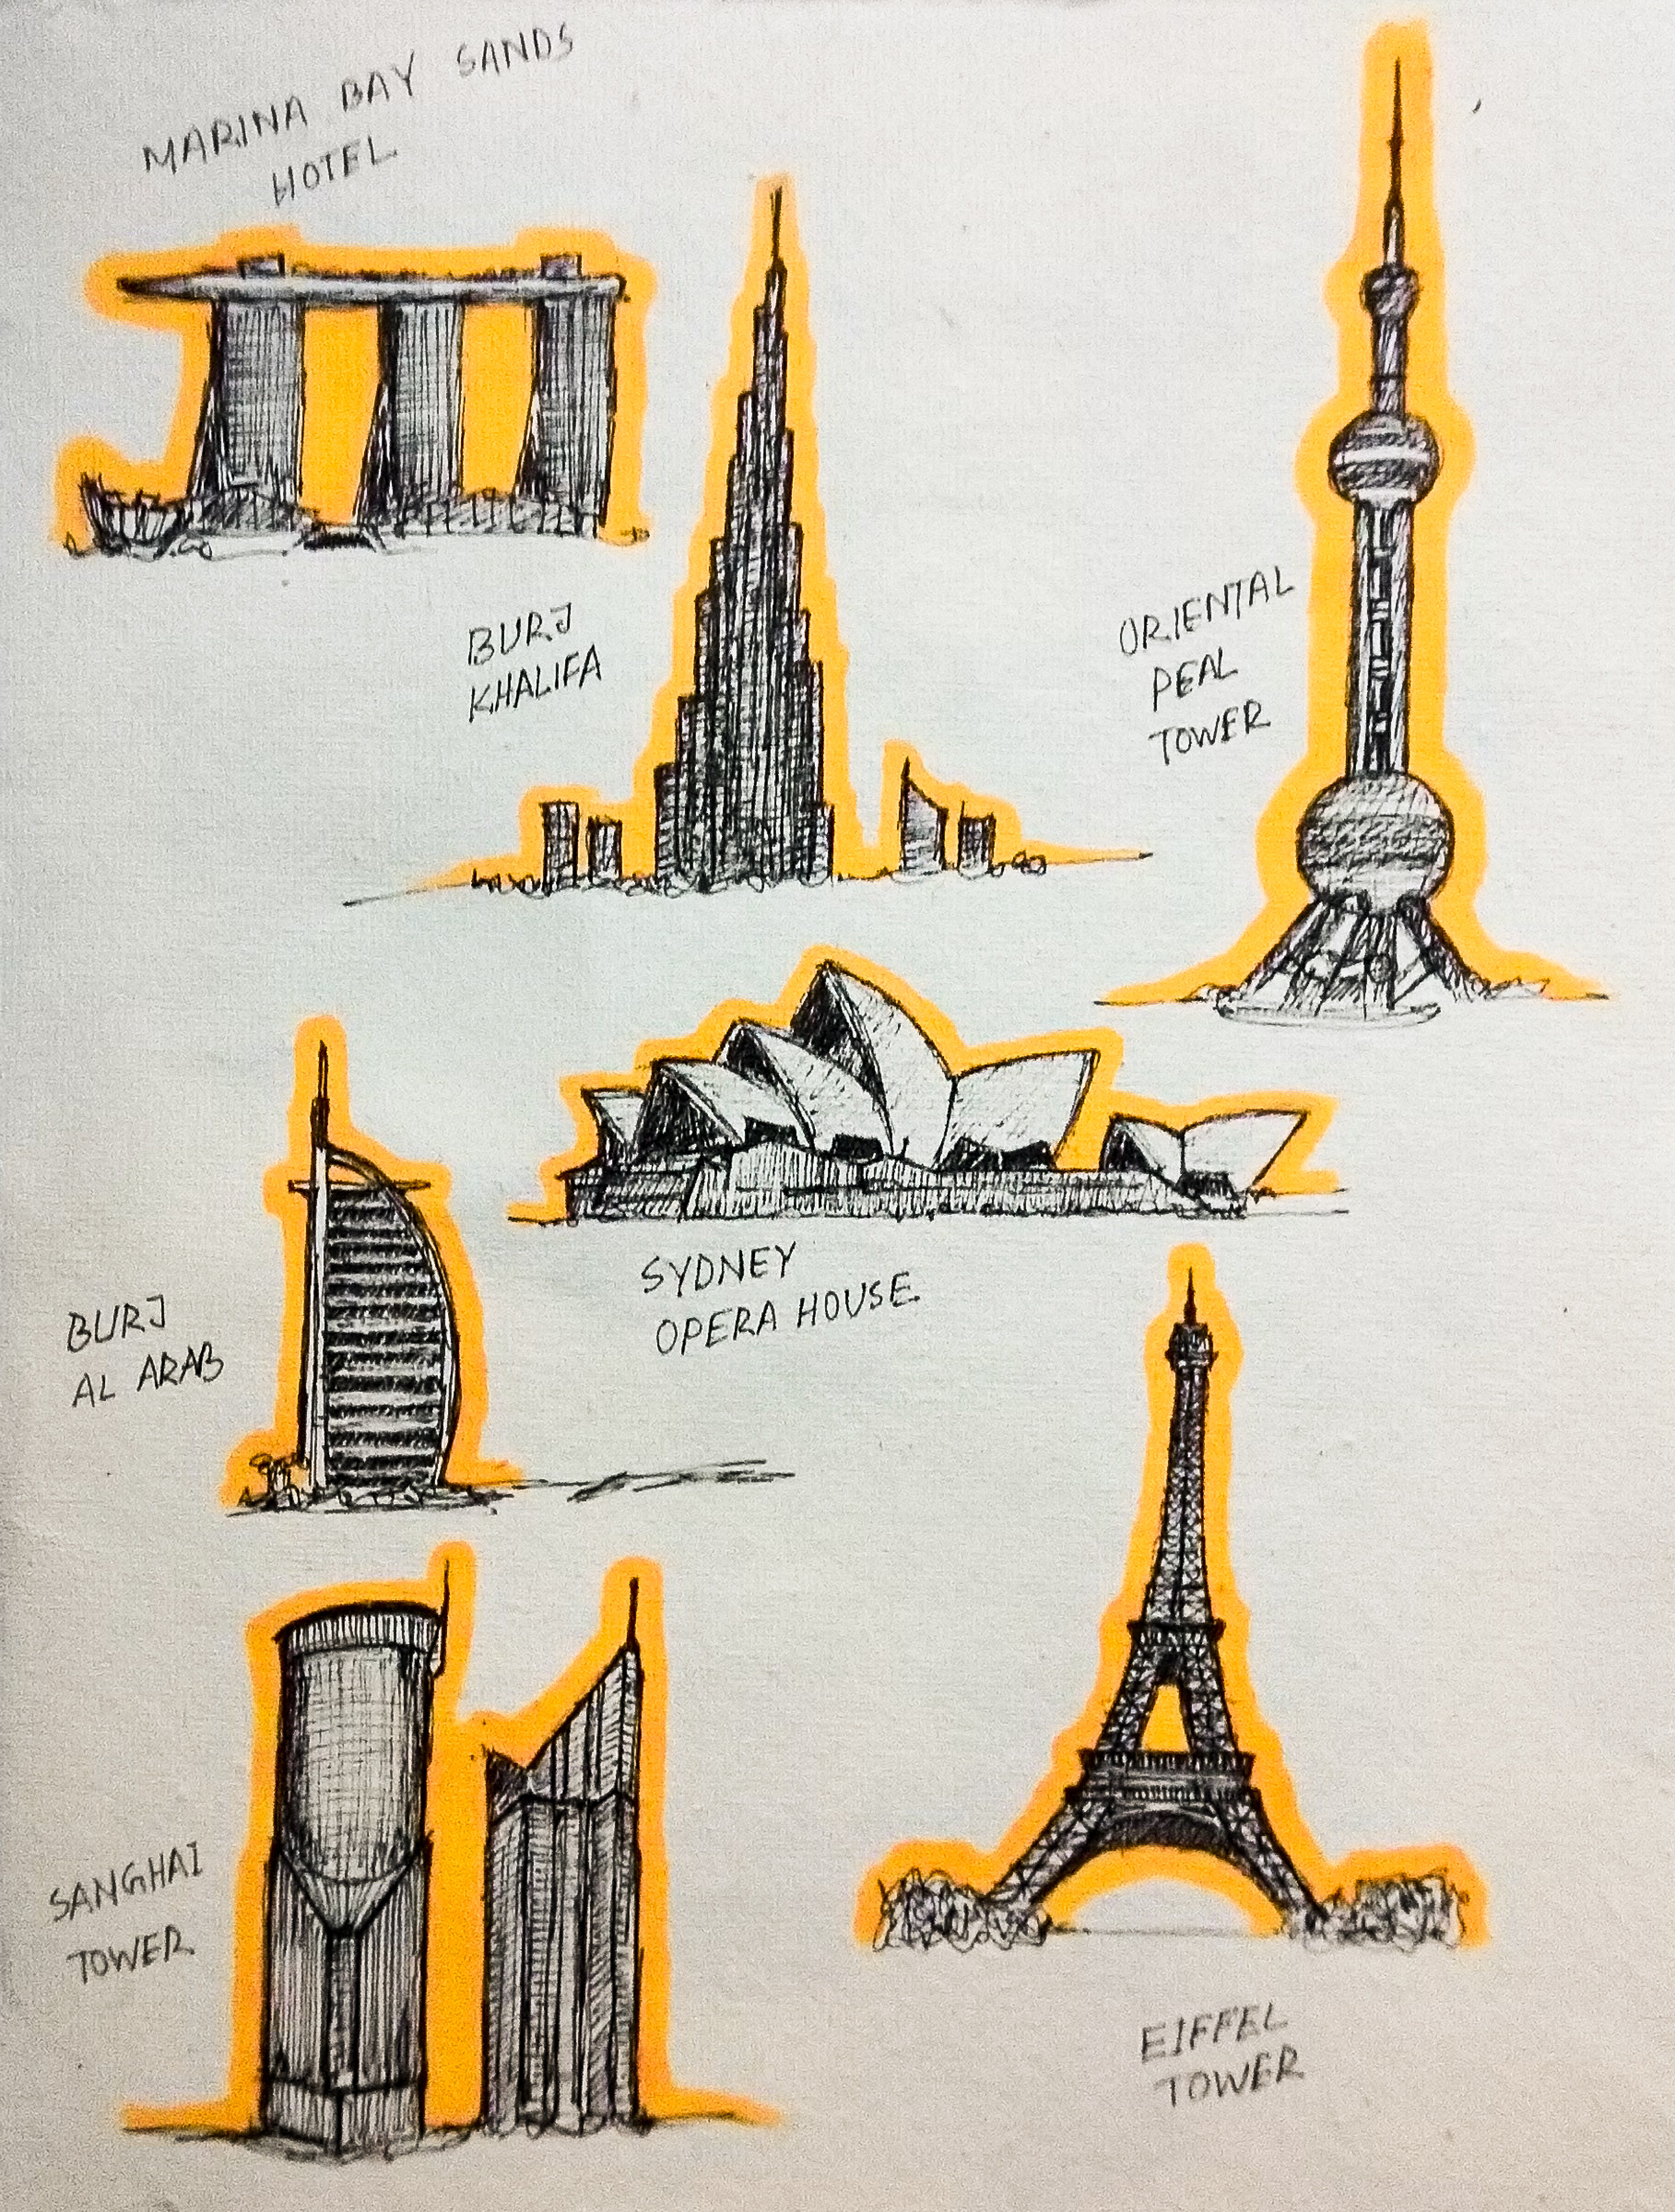 MARINA BAY SANDS
HOTEL
BURJ
KHALIFA
ORIENTAL
PEAL
TOWER
SYDNEY
OPERA HOUSE
BURJ
AL ARAB
SANGHAI
TOWER
EIFFEL
TOWER